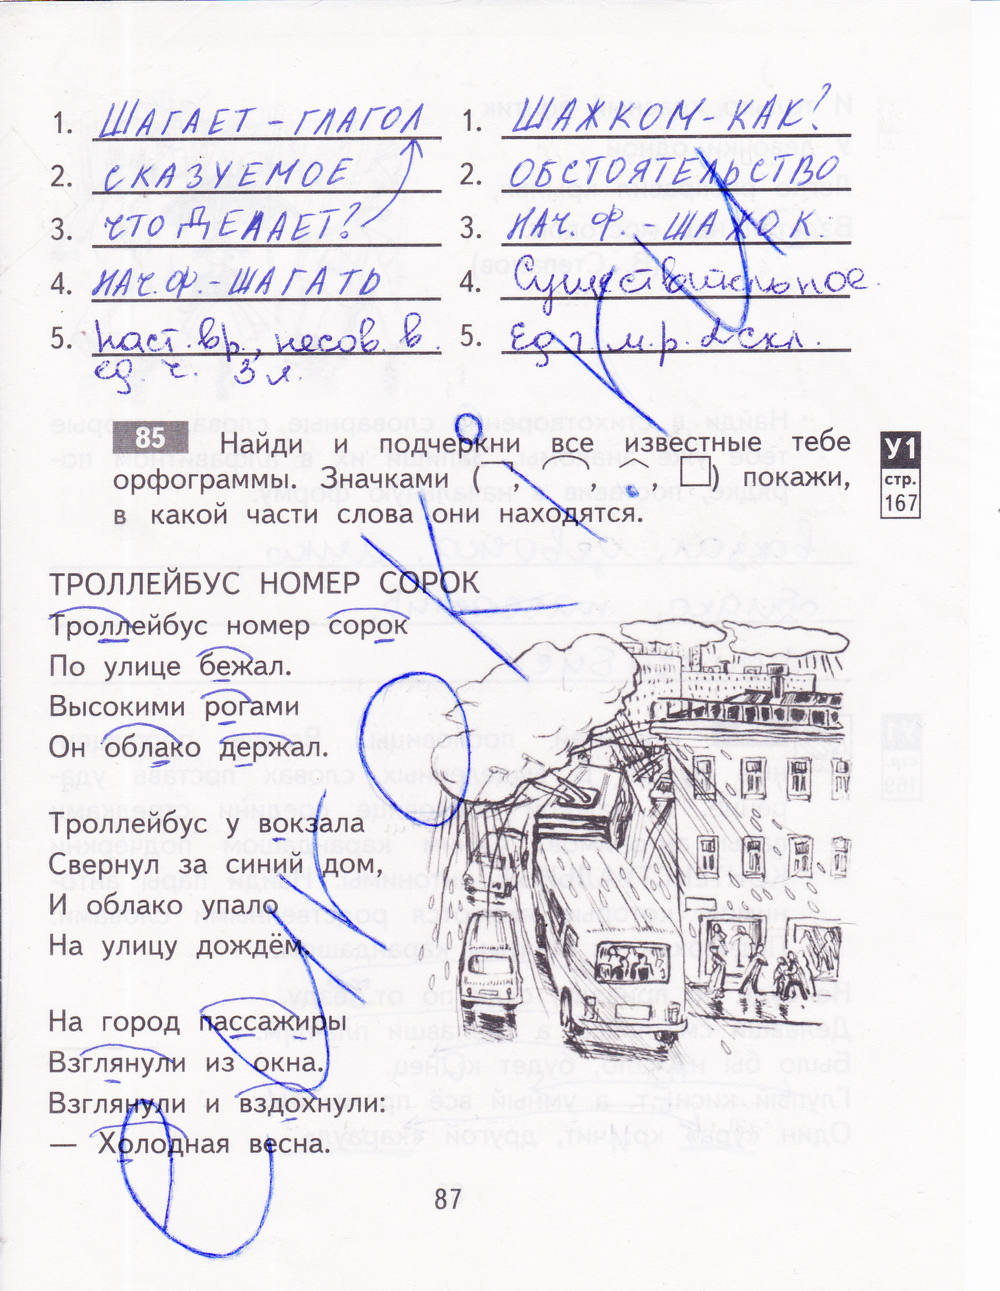 1. ШАГАЕТ - ГЛАГОЛ
2. СКАЗУЕМОЕ
3. ЧТО ДЕЛАЕТ?
4. НАЧ. Ф. - ШАГАТЬ
5. Наст. вр., несов. в.
ед. ч. 3 л.
1. ШАЖКОМ - КАК?
2. ОБСТОЯТЕЛЬСТВО
3. НАЧ. Ф. - ШАЖОК
4. Существительное.
5. Ед ч м.р. 2 скл.
85 Найди и подчеркни все известные тебе
орфограммы. Значками ( , , , ) покажи,
в какой части слова они находятся.
У1
стр.
167
ТРОЛЛЕЙБУС НОМЕР СОРОК
Троллейбус номер сорок
По улице бежал.
Высокими рогами
Он облако держал.
Троллейбус у вокзала
Свернул за синий дом
И облако упало
На улицу дождём.
На город пассажиры
Взглянули из окна.
Взглянули и вздохнули:
— Холодная весна.
87